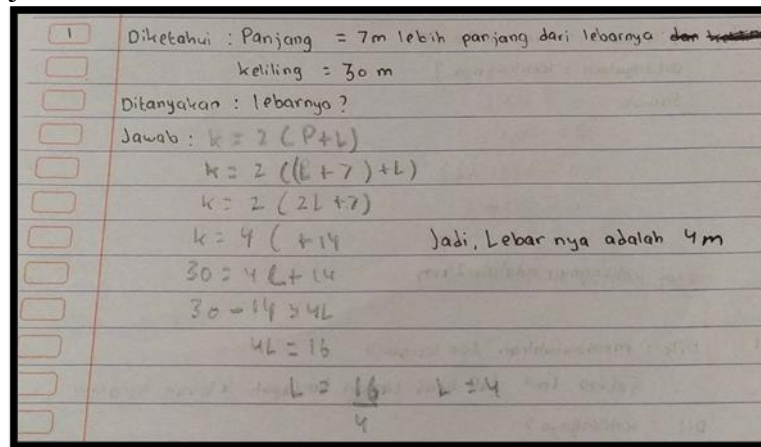 1 Diketahui : Panjang = 7m lebih panjang dari lebarnya
keliling = 30 m
Ditanyakan : lebarnya ?
Jawab : k = 2 (P+L)
k = 2 ((L + 7) + L)
k = 2 (2L + 7)
k = 4 L + 14 Jadi, Lebar nya adalah 4 m
30 = 4 L + 14
30 - 14 = 4L
4L = 16
L = 16/4 L = 4